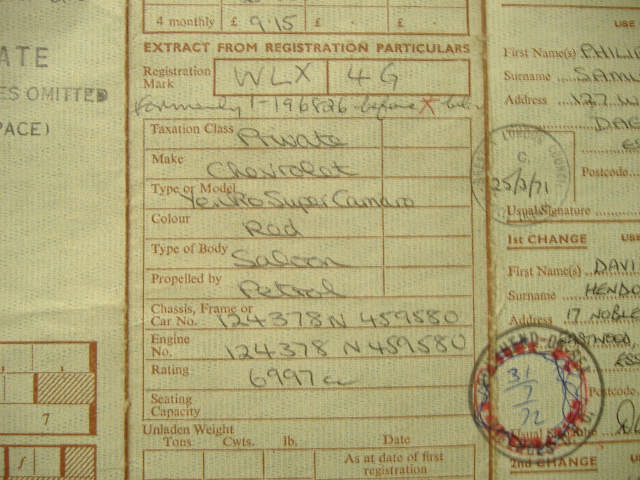 4 monthly £ 9.15 £ . £ .
EXTRACT FROM REGISTRATION PARTICULARS
Registration Mark WLX 4G
Formerly 1-196826 before X
Taxation Class Private
Make Chevrolet
Type or Model Yenko Super Camaro
Colour Red
Type of Body Saloon
Propelled by Petrol
Chassis, Frame or
Car No. 124378N 459580
Engine
No. 124378 N 459580
Rating 6997 cc
Seating
Capacity
Unladen Weight
Tons. Cwts. lb. Date
As at date of first
registration
ATE
ES OMITTED
PACE)
7
f
USE
First Name(s) PHILI
Surname SAMU
Address 127
DAG
ES
Postcode
25/3/71
Usual Signature
1st CHANGE USE
First Name(s) DAVI
Surname HENDO
Address 17 NOBLE
EASTWOOD,
ESS
Postcode
31
7
72
Usual
2nd CHANGE USE